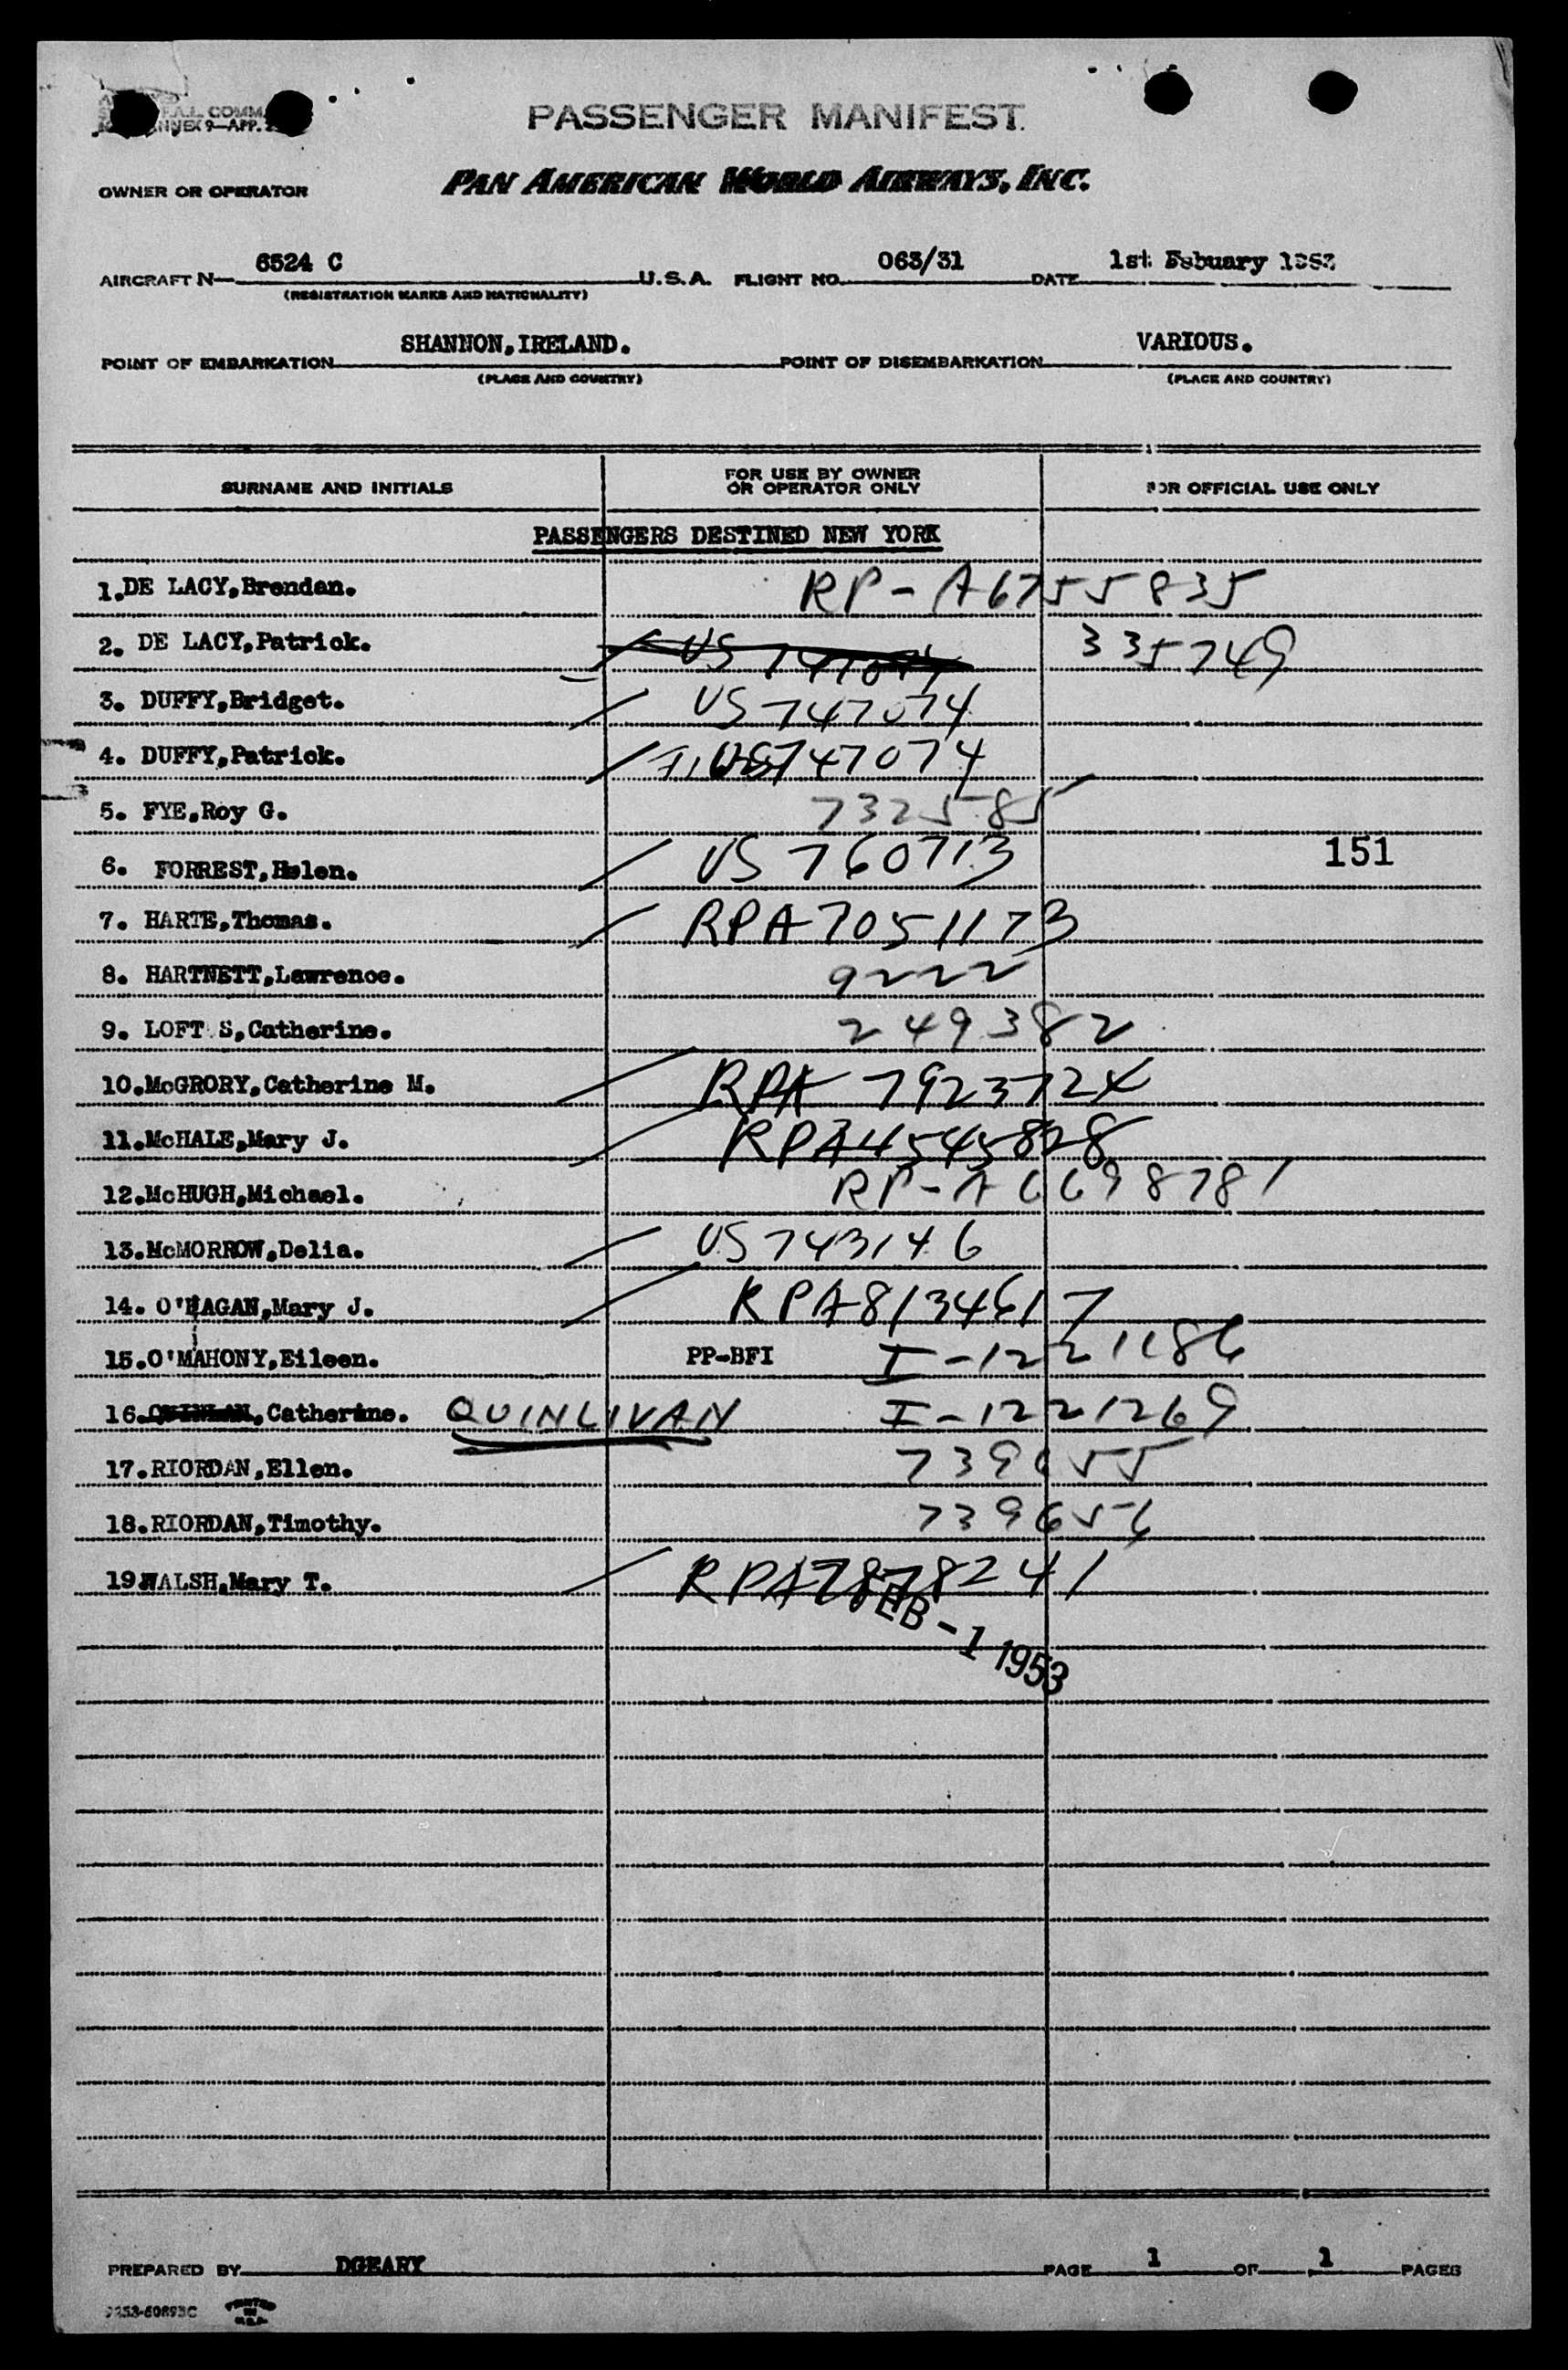 F.A.L. COMM
ANNEX 9—APP.
PASSENGER MANIFEST.
OWNER OR OPERATOR PAN AMERICAN WORLD AIRWAYS, INC.
AIRCRAFT N— 6524 C U.S.A. FLIGHT NO. 063/31 DATE 1st Febuary 1953
(REGISTRATION MARKS AND NATIONALITY)
POINT OF EMBARKATION SHANNON, IRELAND. POINT OF DISEMBARKATION VARIOUS.
(PLACE AND COUNTRY) (PLACE AND COUNTRY)
SURNAME AND INITIALS FOR USE BY OWNER OR OPERATOR ONLY FOR OFFICIAL USE ONLY
PASSENGERS DESTINED NEW YORK
1.DE LACY,Brendan. RP-A6755835
2. DE LACY,Patrick. US 747074 335749
3. DUFFY,Bridget. US 747074
4. DUFFY,Patrick. 747074
5. FYE,Roy G. 732585
6. FORREST,Helen. US 760713 151
7. HARTE,Thomas. RPA 7051173
8. HARTNETT,Lawrence. 9222
9. LOFT S,Catherine. 249382
10.McGRORY,Catherine M. RPA 7923724
11.McHALE,Mary J. RPA4545828
12.McHUGH,Michael. RP-A6698781
13.McMORROW,Delia. US 743146
14. O'HAGAN,Mary J. RPA8134617
15.O'MAHONY,Eileen. PP-BFI I-1221186
16.QUINLAN,Catherine. QUINLIVAN I-1221269
17.RIORDAN,Ellen. 739655
18.RIORDAN,Timothy. 739656
19.WALSH,Mary T. RPA7878241
FEB -1 1953
PREPARED BY DGEARY PAGE 1 OF 1 PAGES
PRINTED IN U.S.A.